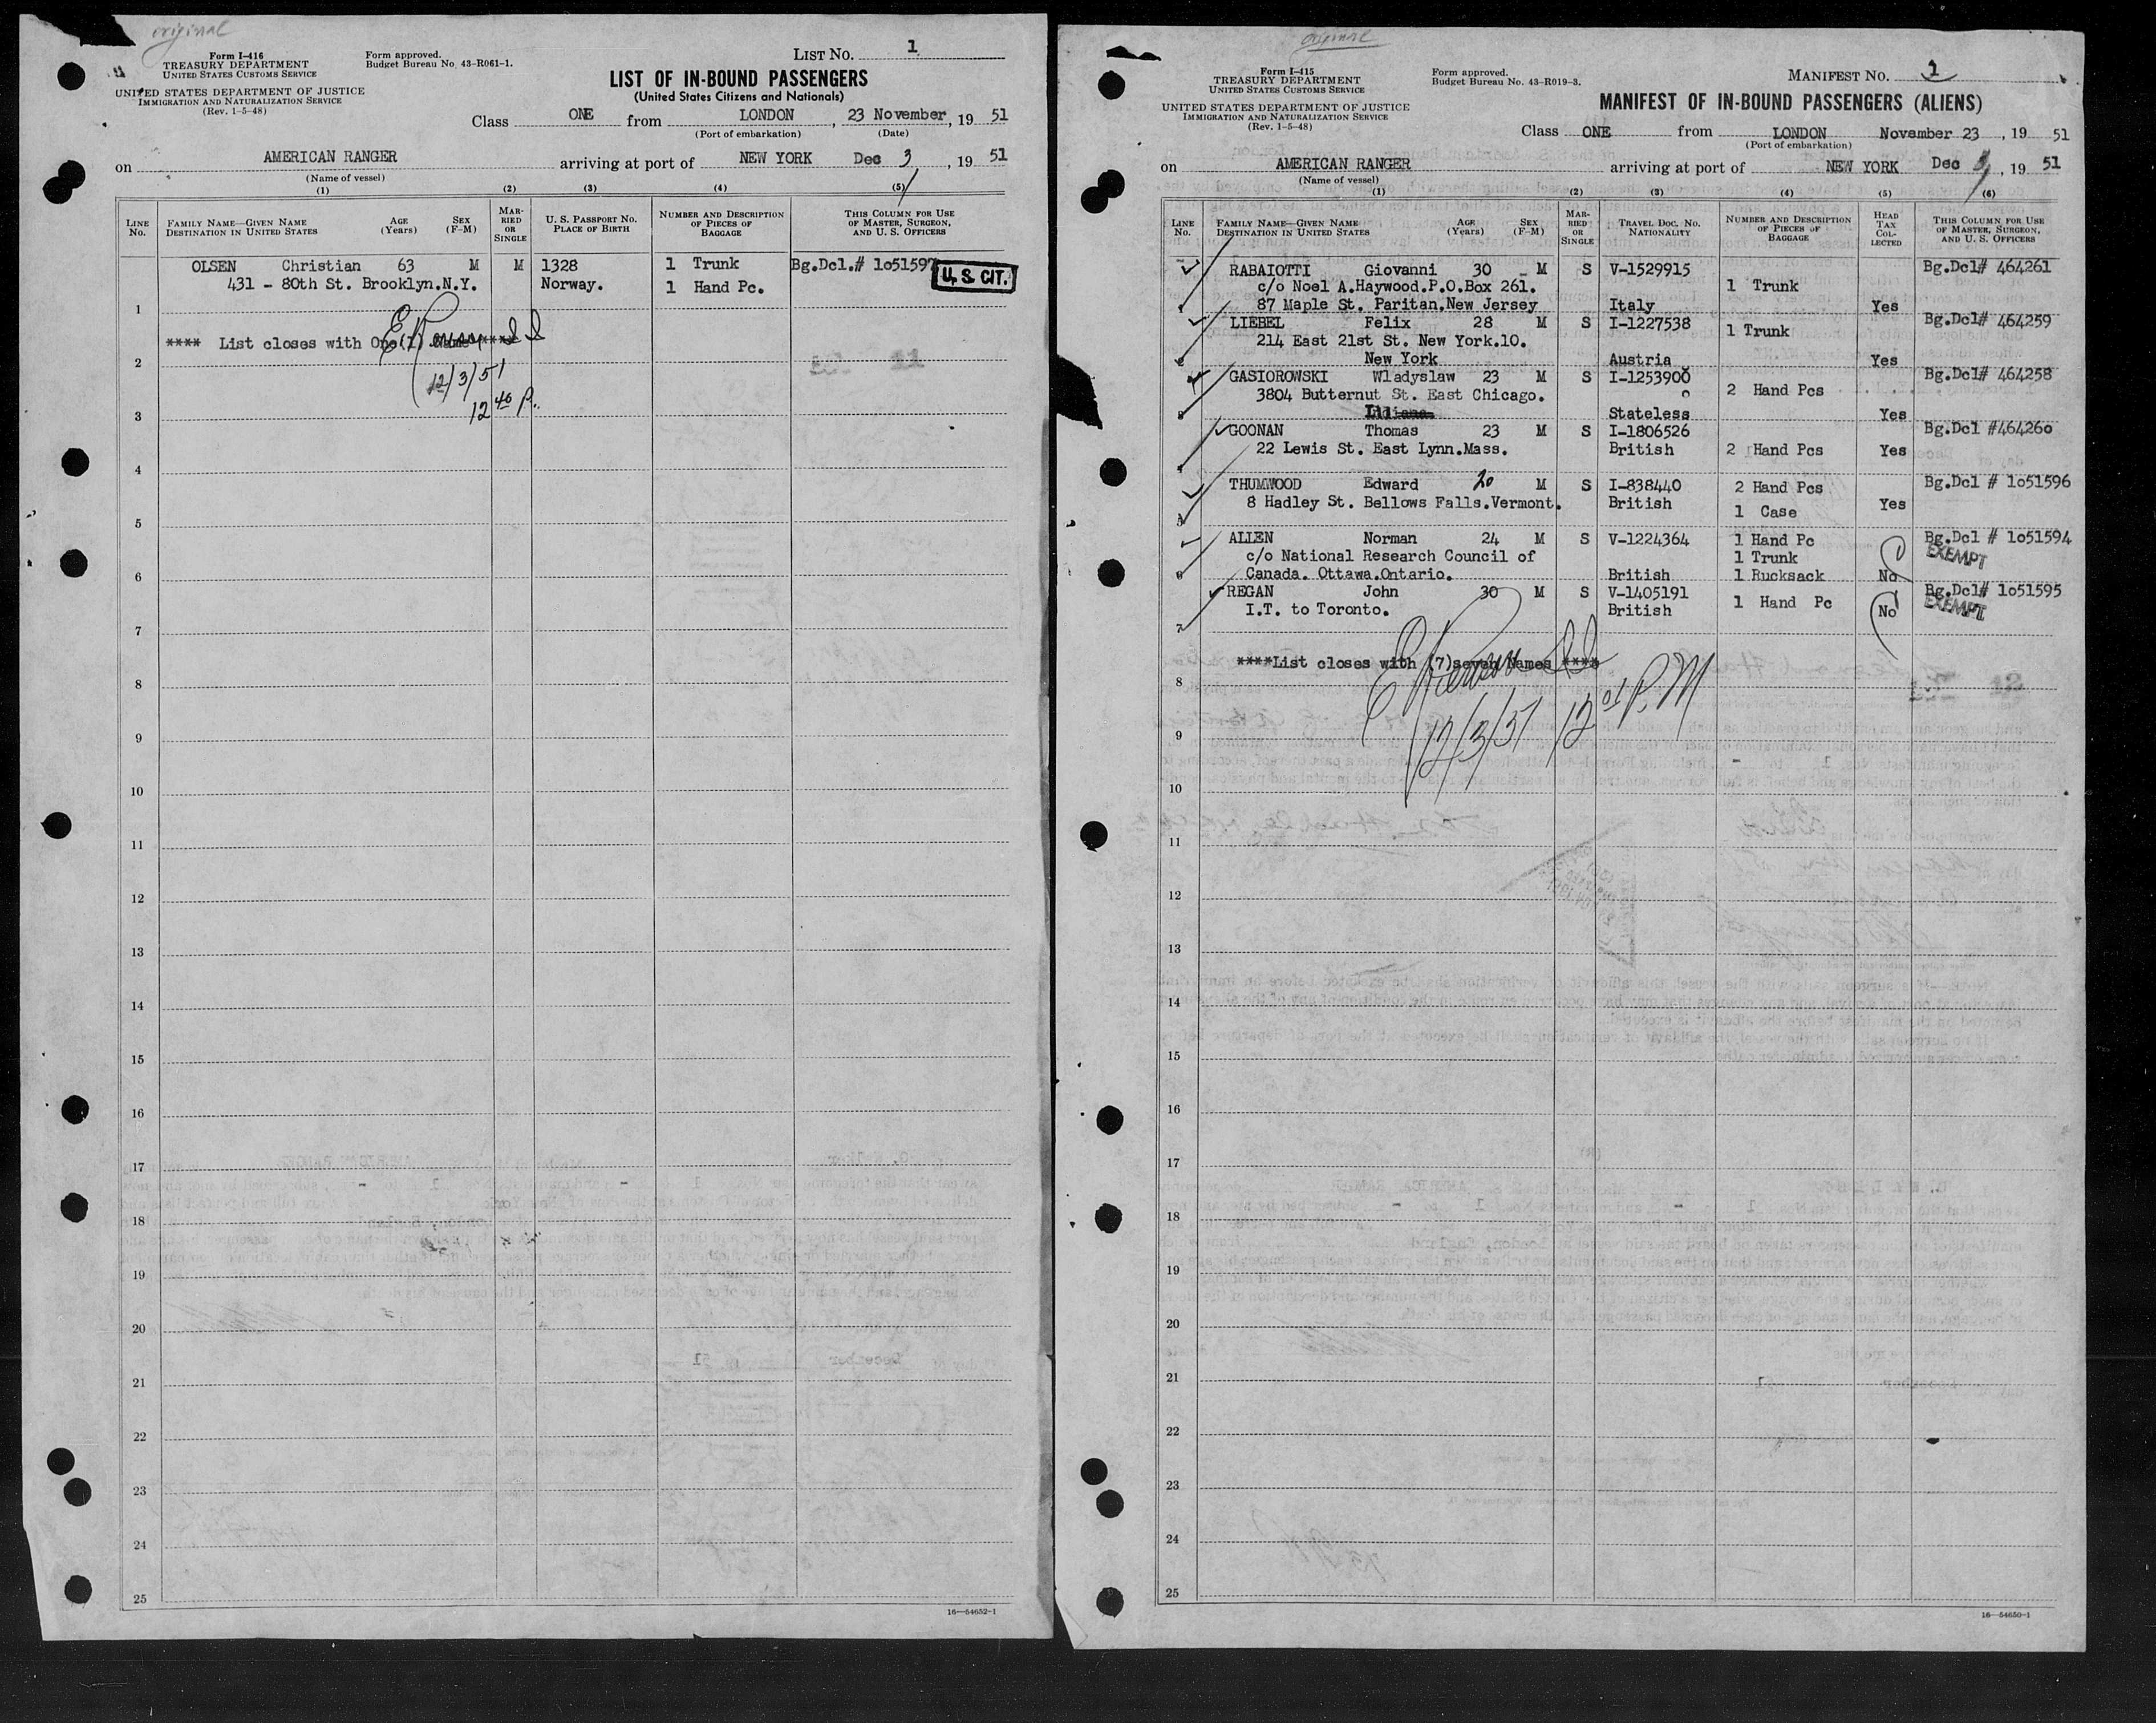 original
Form I-416
TREASURY DEPARTMENT
UNITED STATES CUSTOMS SERVICE
UNITED STATES DEPARTMENT OF JUSTICE
IMMIGRATION AND NATURALIZATION SERVICE
(Rev. 1-5-48)
Form approved.
Budget Bureau No. 43-R061-1.
LIST No. 1
LIST OF IN-BOUND PASSENGERS
(United States Citizens and Nationals)
Class ONE from LONDON, 23 November, 19 51
(Port of embarkation) (Date)
on AMERICAN RANGER arriving at port of NEW YORK Dec 3, 19 51
(Name of vessel)
(1) (2) (3) (4) (5)
LINE No. FAMILY NAME—GIVEN NAME DESTINATION IN UNITED STATES AGE (Years) SEX (F-M) MARRIED OR SINGLE U. S. PASSPORT NO. PLACE OF BIRTH NUMBER AND DESCRIPTION OF PIECES OF BAGGAGE THIS COLUMN FOR USE OF MASTER, SURGEON, AND U. S. OFFICERS
OLSEN Christian 63 M M 1328 1 Trunk Bg.Dcl.# 1o51597 U.S. CIT.
431 - 80th St. Brooklyn.N.Y. Norway. 1 Hand Pc.
1
**** List closes with One(1)
2
12/3/51
12 40 P.
3
4
5
6
7
8
9
10
11
12
13
14
15
16
17
18
19
20
21
22
23
24
25
16—54652-1
original
Form I-415
TREASURY DEPARTMENT
UNITED STATES CUSTOMS SERVICE
UNITED STATES DEPARTMENT OF JUSTICE
IMMIGRATION AND NATURALIZATION SERVICE
(Rev. 1-5-48)
Form approved.
Budget Bureau No. 43-R019-3.
MANIFEST No. 1
MANIFEST OF IN-BOUND PASSENGERS (ALIENS)
Class ONE from LONDON November 23, 19 51
(Port of embarkation)
on AMERICAN RANGER arriving at port of NEW YORK Dec 3, 19 51
(Name of vessel)
(1) (2) (3) (4) (5) (6)
LINE No. FAMILY NAME—GIVEN NAME DESTINATION IN UNITED STATES AGE (Years) SEX (F-M) MARRIED OR SINGLE TRAVEL DOC. NO. NATIONALITY NUMBER AND DESCRIPTION OF PIECES OF BAGGAGE HEAD TAX COLLECTED THIS COLUMN FOR USE OF MASTER, SURGEON, AND U. S. OFFICERS
RABAIOTTI Giovanni 30 M S V-1529915 Bg.Dcl# 464261
c/o Noel A.Haywood.P.O.Box 261. 1 Trunk
1 87 Maple St. Paritan.New Jersey Italy Yes
LIEBEL Felix 28 M S I-1227538 1 Trunk Bg.Dcl# 464259
214 East 21st St. New York.10.
2 New York Austria Yes
GASIOROWSKI Wladyslaw 23 M S I-1253900 2 Hand Pcs Bg.Dcl# 464258
3804 Butternut St. East Chicago.
3 Stateless Yes
GOONAN Thomas 23 M S I-1806526 Bg.Dcl #46426o
22 Lewis St. East Lynn.Mass. British 2 Hand Pcs Yes
4
THUMWOOD Edward 20 M S I-838440 2 Hand Pcs Bg.Dcl # 1o51596
8 Hadley St. Bellows Falls.Vermont. British 1 Case Yes
5
ALLEN Norman 24 M S V-1224364 1 Hand Pc Bg.Dcl # 1o51594
c/o National Research Council of 1 Trunk EXEMPT
6 Canada. Ottawa.Ontario. British 1 Rucksack No
REGAN John 30 M S V-1405191 1 Hand Pc Bg.Dcl# 1o51595
I.T. to Toronto. British No EXEMPT
7
****List closes with (7)seven Names ****
8
12/3/51 12 01 P.M
9
10
11
12
13
14
15
16
17
18
19
20
21
22
23
24
25
16—54650-1